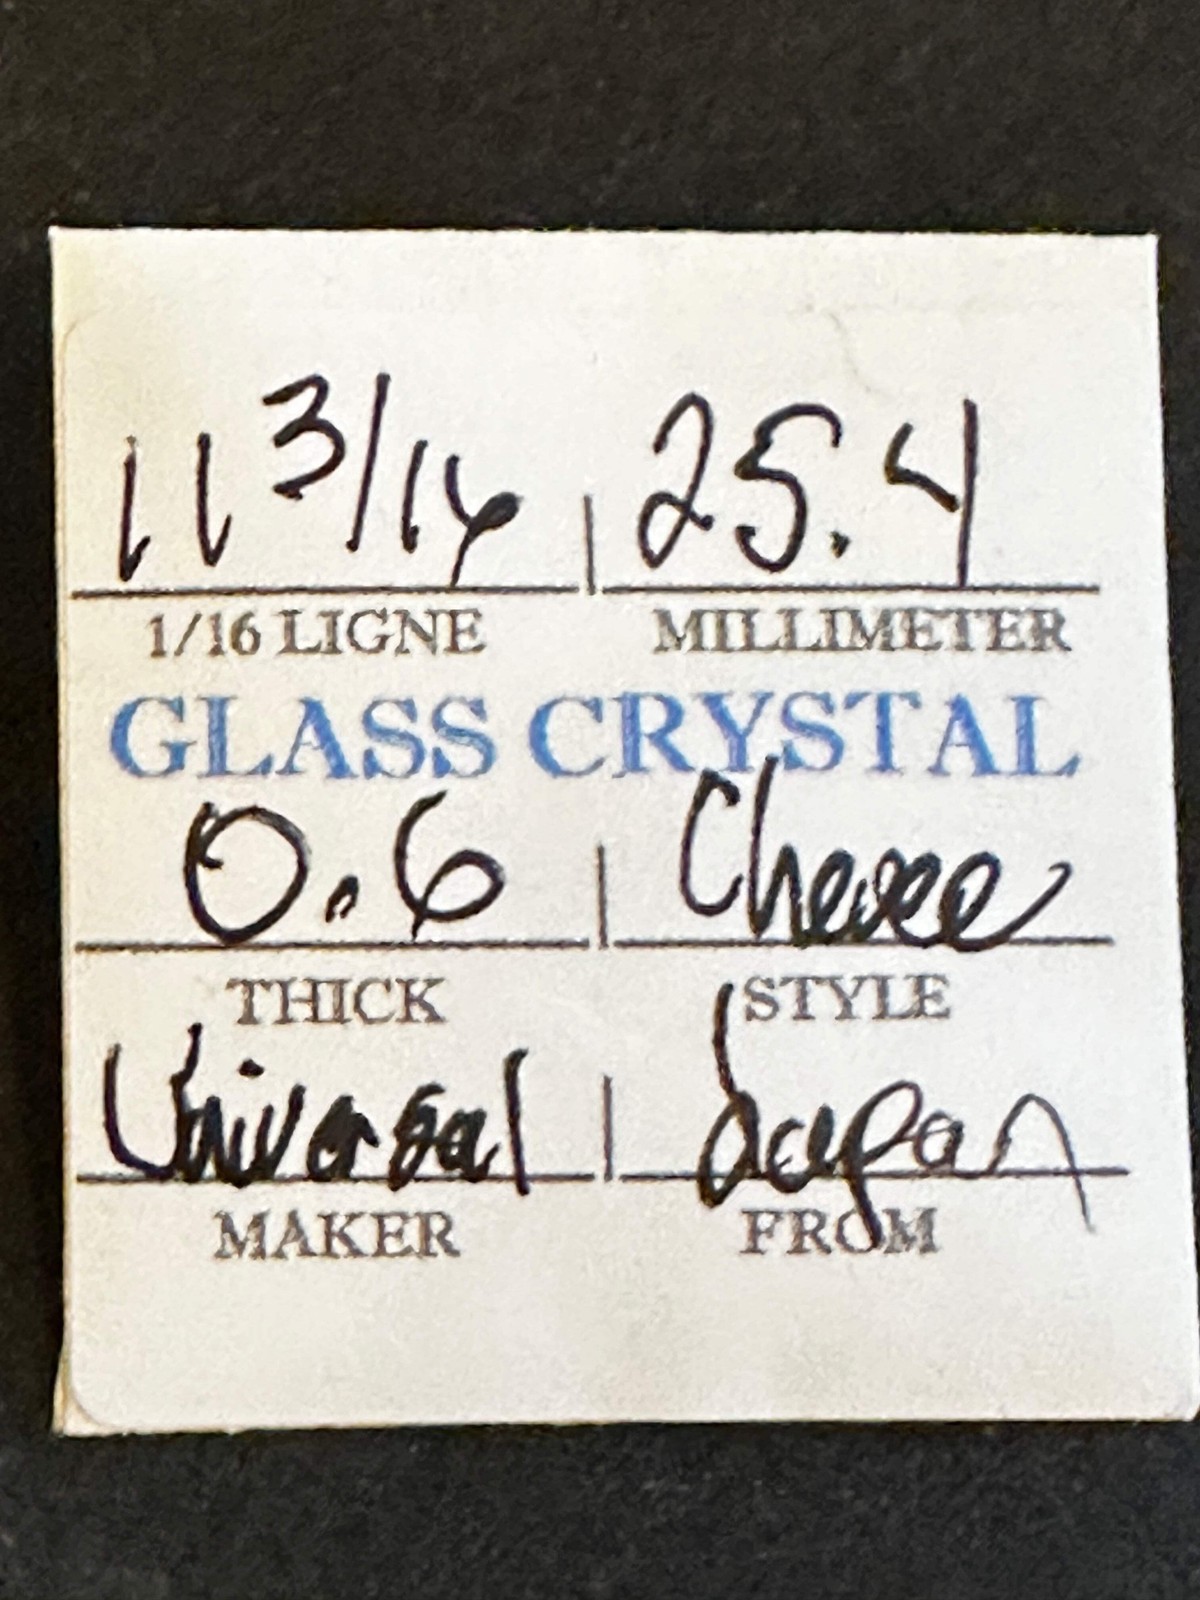 11 3/16 25.4
1/16 LIGNE MILLIMETER
GLASS CRYSTAL
0.6
THICK STYLE
Universal Japan
MAKER FROM